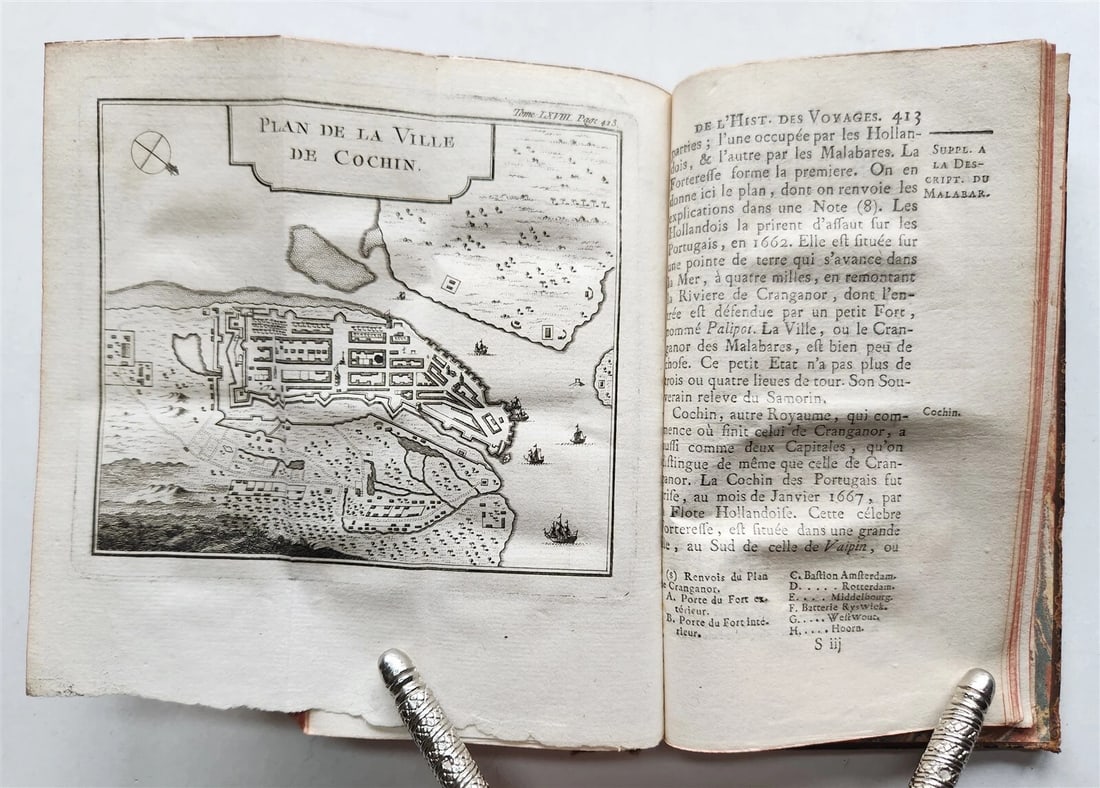 PLAN DE LA VILLE
DE COCHIN.
Tome LXVIII. Page 413.
DE L'HIST. DES VOYAGES. 413
parties ; l'une occupée par les Hollan-
dois, & l'autre par les Malabares. La
Fortereſſe forme la premiere. On en
donne ici le plan, dont on renvoie les
explications dans une Note (8). Les
Hollandois la prirent d'aſſaut ſur les
Portugais, en 1662. Elle eſt ſituée ſur
une pointe de terre qui s'avance dans
la Mer, à quatre milles, en remontant
la Riviere de Cranganor, dont l'en-
trée eſt défendue par un petit Fort,
nommé Palipot. La Ville, ou le Cran-
ganor des Malabares, eſt bien peu de
choſe. Ce petit Etat n'a pas plus de
trois ou quatre lieues de tour. Son Sou-
verain releve du Samorin.
Cochin, autre Royaume, qui com-
mence où finit celui de Cranganor, a
auſſi comme deux Capitales, qu'on
diſtingue de même que celle de Cran-
ganor. La Cochin des Portugais fut
priſe, au mois de Janvier 1667, par
Flote Hollandoiſe. Cette célebre
Fortereſſe, eſt ſituée dans une grande
au Sud de celle de Vaipin, ou
SUPPL. A
LA DES-
CRIPT. DU
MALABAR.
Cochin.
(8) Renvois du Plan
de Cranganor.
A. Porte du Fort ex-
térieur.
B. Porte du Fort inté-
rieur.
C. Baſtion Amſterdam.
D. . . . . Rotterdam.
E. . . . Middelbourg.
F. Batterie Ryswick.
G. . . . . Weſtwout.
H. . . . . Hoorn.
S iij